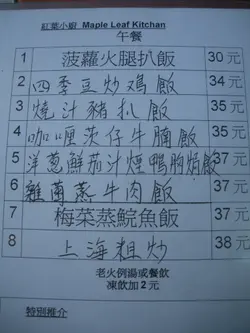 紅葉小廚 Maple Leaf Kitchan
午餐
1 菠蘿火腿扒飯 30元
2 四季豆炒鳮飯 34元
3 燒汁豬扒飯 35元
4 咖哩茨仔牛腩飯 35元
5 洋蔥鮮茄汁煙鴨胸焗飯 37元
6 雜菌蒸牛肉飯 37元
7 梅菜蒸鯇魚飯 37元
8 上海粗炒 38元
老火例湯或餐飲
凍飲加2元
特別推介